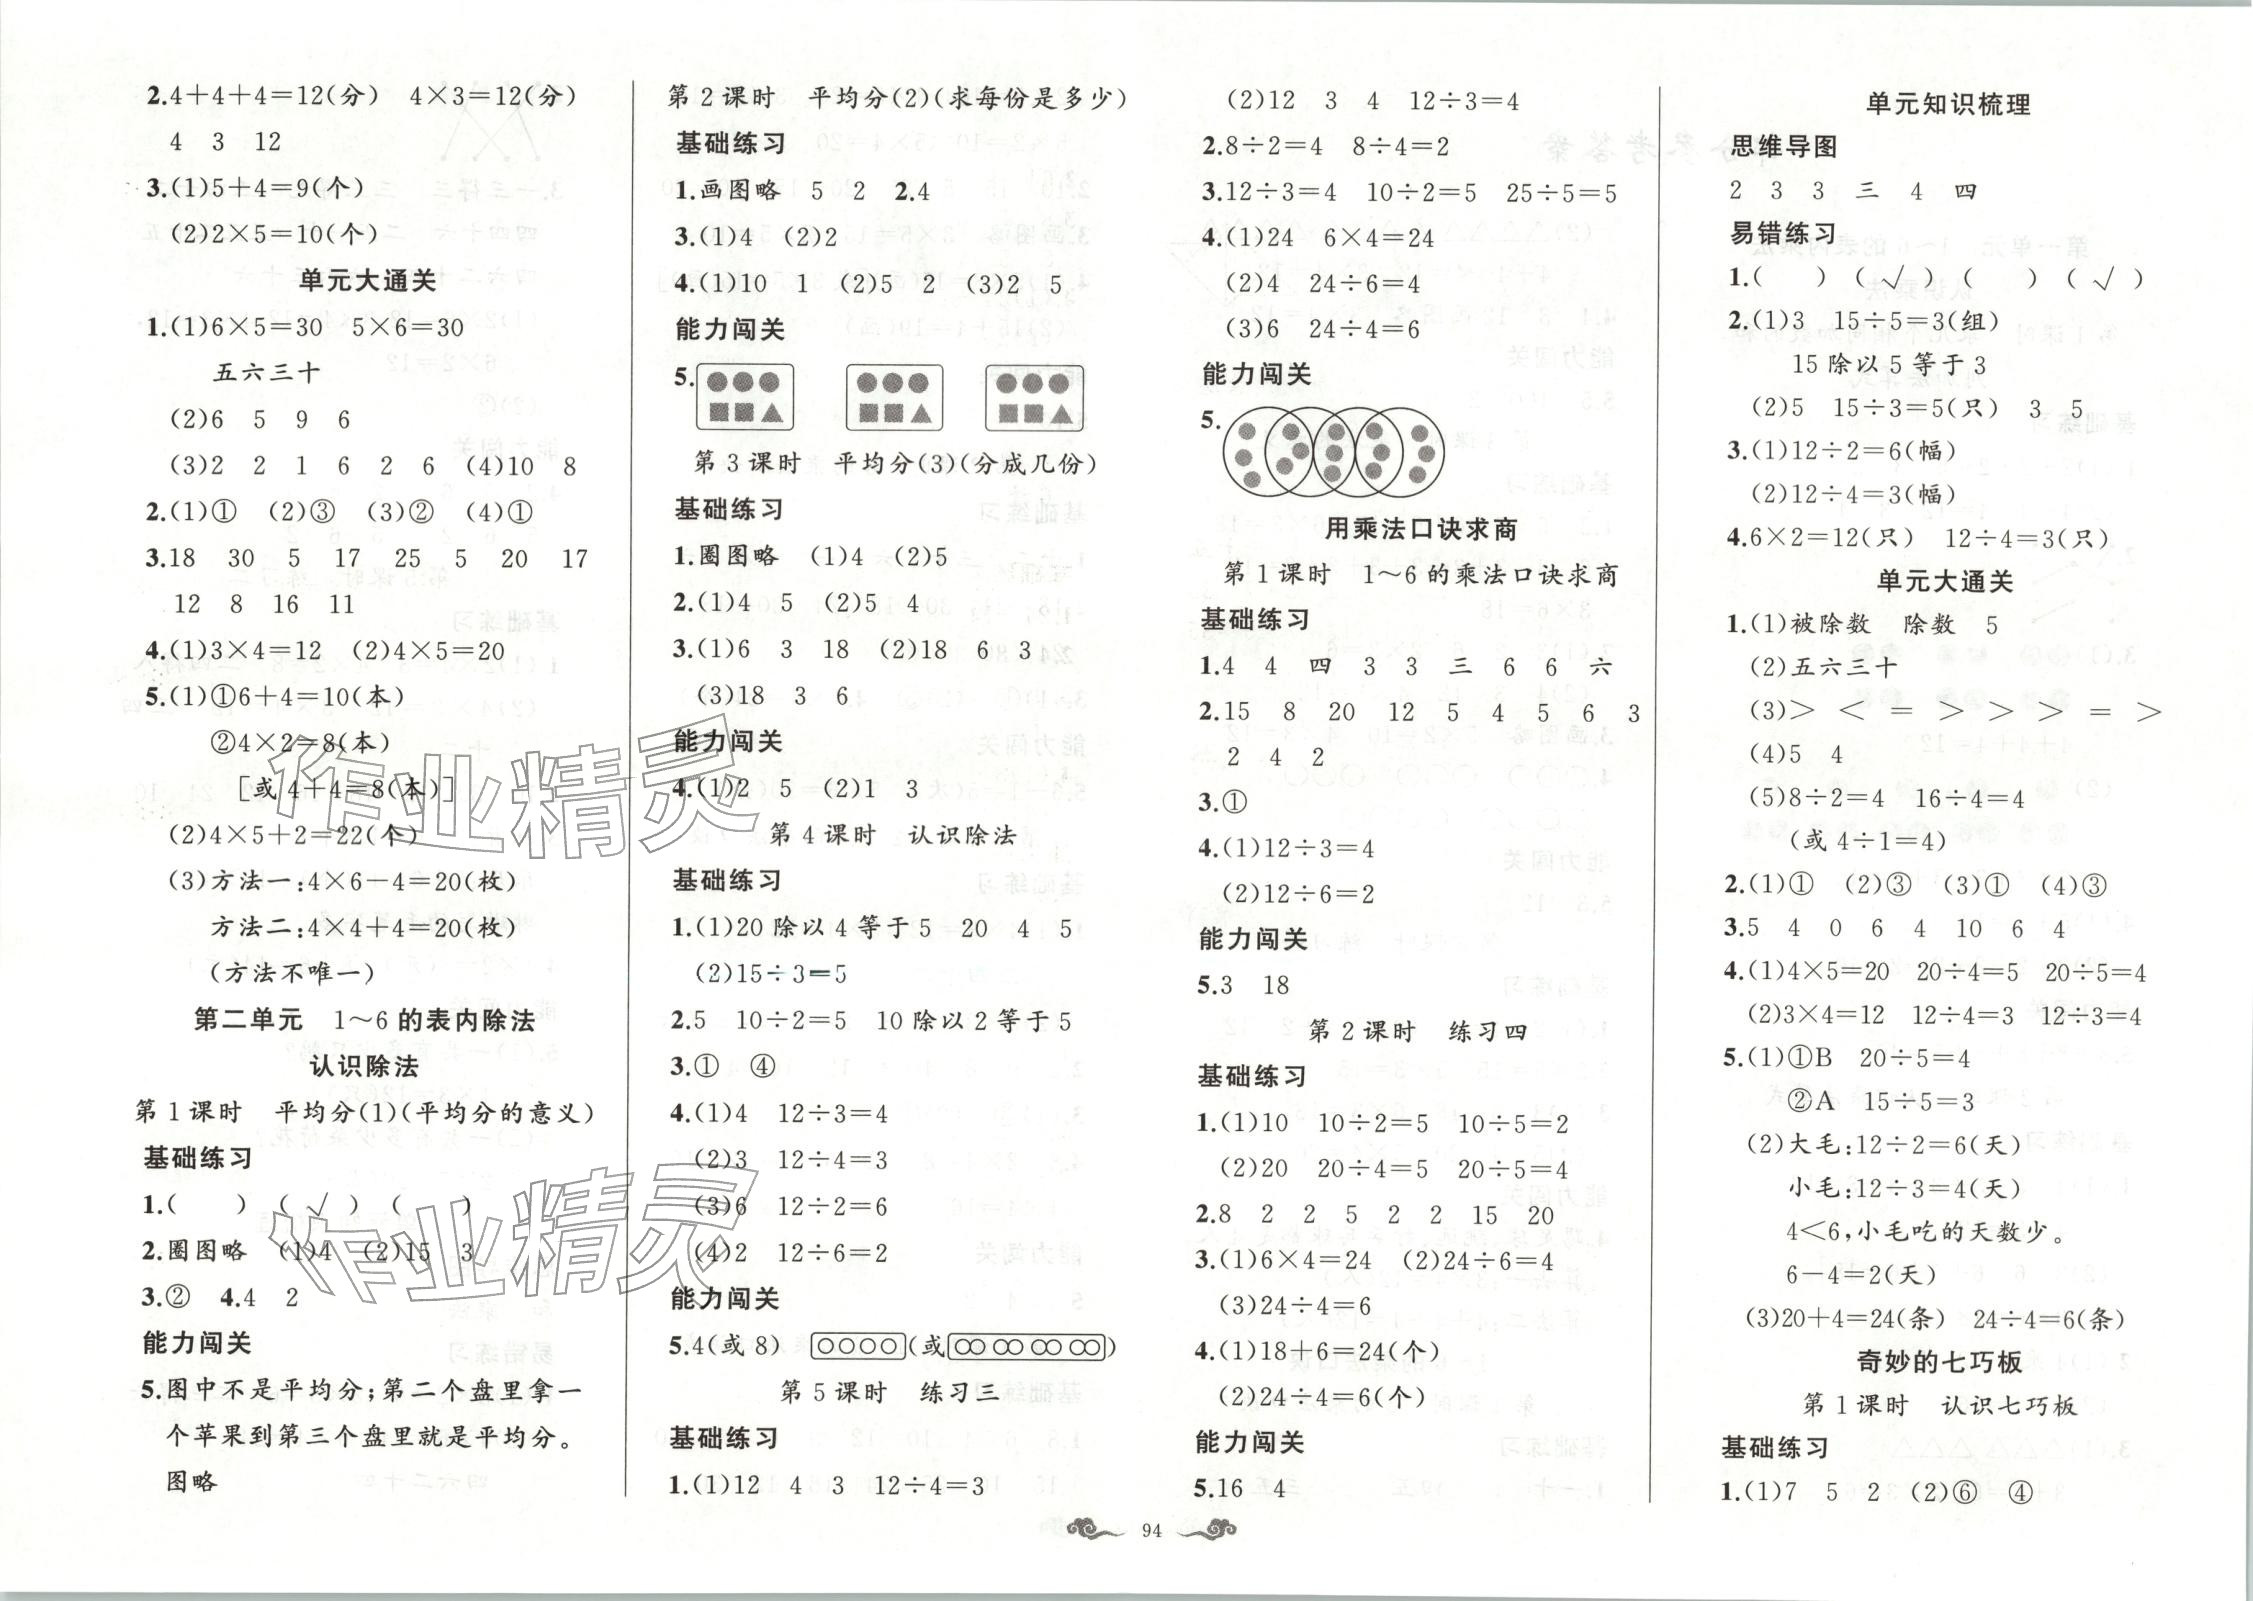 2.4+4+4=12(分) 4×3=12(分)
4 3 12
3.(1)5+4=9(个)
(2)2×5=10(个)
单元大通关
1.(1)6×5=30 5×6=30
五六三十
(2)6 5 9 6
(3)2 2 1 6 2 6 (4)10 8
2.(1)① (2)③ (3)② (4)①
3.18 30 5 17 25 5 20 17
12 8 16 11
4.(1)3×4=12 (2)4×5=20
5.(1)①6+4=10(本)
②4×2=8(本)
[或4+4=8(本)]
(2)4×5+2=22(个)
(3)方法一:4×6-4=20(枚)
方法二:4×4+4=20(枚)
(方法不唯一)
第二单元 1~6的表内除法
认识除法
第1课时 平均分(1)(平均分的意义)
基础练习
1.( ) (√) ( )
2.圈图略 (1)4 (2)15 3
3.② 4.4 2
能力闯关
5.图中不是平均分;第二个盘里拿一
个苹果到第三个盘里就是平均分。
图略
第2课时 平均分(2)(求每份是多少)
基础练习
1.画图略 5 2 2.4
3.(1)4 (2)2
4.(1)10 1 (2)5 2 (3)2 5
能力闯关
5.
第3课时 平均分(3)(分成几份)
基础练习
1.圈图略 (1)4 (2)5
2.(1)4 5 (2)5 4
3.(1)6 3 18 (2)18 6 3
(3)18 3 6
能力闯关
4.(1)2 5 (2)1 3
第4课时 认识除法
基础练习
1.(1)20除以4等于5 20 4 5
(2)15÷3=5
2.5 10÷2=5 10除以2等于5
3.① ④
4.(1)4 12÷3=4
(2)3 12÷4=3
(3)6 12÷2=6
(4)2 12÷6=2
能力闯关
5.4(或8) (或 )
第5课时 练习三
基础练习
1.(1)12 4 3 12÷4=3
(2)12 3 4 12÷3=4
2.8÷2=4 8÷4=2
3.12÷3=4 10÷2=5 25÷5=5
4.(1)24 6×4=24
(2)4 24÷6=4
(3)6 24÷4=6
能力闯关
5.
用乘法口诀求商
第1课时 1~6的乘法口诀求商
基础练习
1.4 4 四 3 3 三 6 6 六
2.15 8 20 12 5 4 5 6 3
2 4 2
3.①
4.(1)12÷3=4
(2)12÷6=2
能力闯关
5.3 18
第2课时 练习四
基础练习
1.(1)10 10÷2=5 10÷5=2
(2)20 20÷4=5 20÷5=4
2.8 2 2 5 2 2 15 20
3.(1)6×4=24 (2)24÷6=4
(3)24÷4=6
4.(1)18+6=24(个)
(2)24÷4=6(个)
能力闯关
5.16 4
单元知识梳理
思维导图
2 3 3 三 4 四
易错练习
1.( ) (√) ( ) (√)
2.(1)3 15÷5=3(组)
15除以5等于3
(2)5 15÷3=5(只) 3 5
3.(1)12÷2=6(幅)
(2)12÷4=3(幅)
4.6×2=12(只) 12÷4=3(只)
单元大通关
1.(1)被除数 除数 5
(2)五六三十
(3)> < = > > > = >
(4)5 4
(5)8÷2=4 16÷4=4
(或4÷1=4)
2.(1)① (2)③ (3)① (4)③
3.5 4 0 6 4 10 6 4
4.(1)4×5=20 20÷4=5 20÷5=4
(2)3×4=12 12÷4=3 12÷3=4
5.(1)①B 20÷5=4
②A 15÷5=3
(2)大毛:12÷2=6(天)
小毛:12÷3=4(天)
4<6,小毛吃的天数少。
6-4=2(天)
(3)20+4=24(条) 24÷4=6(条)
奇妙的七巧板
第1课时 认识七巧板
基础练习
1.(1)7 5 2 (2)⑥ ④
94
作业精灵
作业精灵